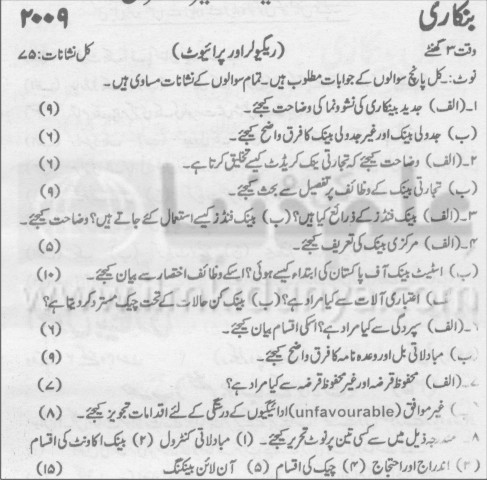 بنکاری ۲۰۰۹
وقت ۳ گھنٹے (ریگولر اور پرائیوٹ) کل نشانات: ۷۵
نوٹ:۔ کل پانچ سوالوں کے جوابات مطلوب ہیں۔ تمام سوالوں کے نشانات مساوی ہیں۔
۱۔ (الف) جدید بینکاری کی نشوونما کی وضاحت کیجئے۔ (۹)
(ب) جدولی بینک اور غیر جدولی بینک کا فرق واضح کیجئے۔ (۶)
۲۔ (الف) وضاحت کیجئے کہ تجارتی بینک کریڈٹ کیسے تخلیق کرتا ہے۔ (۶)
(ب) تجارتی بینک کے وظائف پر تفصیل سے بحث کیجئے۔ (۹)
۳۔ (الف) بینک فنڈز کے ذرائع کیا ہیں؟ (ب) بینک فنڈز کیسے استعمال کئے جاتے ہیں؟ وضاحت کیجئے۔
۴۔ (الف) مرکزی بینک کی تعریف کیجئے۔ (۵)
(ب) اسٹیٹ بینک آف پاکستان کی ابتداء کیسے ہوئی؟ اسکے وظائف اختصار سے بیان کیجئے۔ (۱۰)
اعتباری آلات سے کیا مراد ہے؟ (ب) بینک کن حالات کے تحت چیک مسترد کر دیتا ہے؟
۶۔ (الف) سپردگی سے کیا مراد ہے؟ اسکی اقسام بیان کیجئے۔ (۶)
(ب) مبادلاتی بل اور وعدہ نامہ کا فرق واضح کیجئے۔ (۹)
۷۔ (الف) محفوظ قرضہ اور غیر محفوظ قرضہ سے کیا مراد ہے؟ (۷)
(ب) غیر موافق (unfavourable) ادائیگیوں کے درستگی کے لئے اقدامات تجویز کیجئے۔ (۸)
۸۔ مندرجہ ذیل میں سے کسی تین پر نوٹ تحریر کیجئے۔ (۱) مبادلاتی کنٹرول (۲) بینک اکاونٹ کی اقسام
(۳) اندراج اور احتجاج (۴) چیک کی اقسام (۵) آن لائن بینکنگ (۱۵)